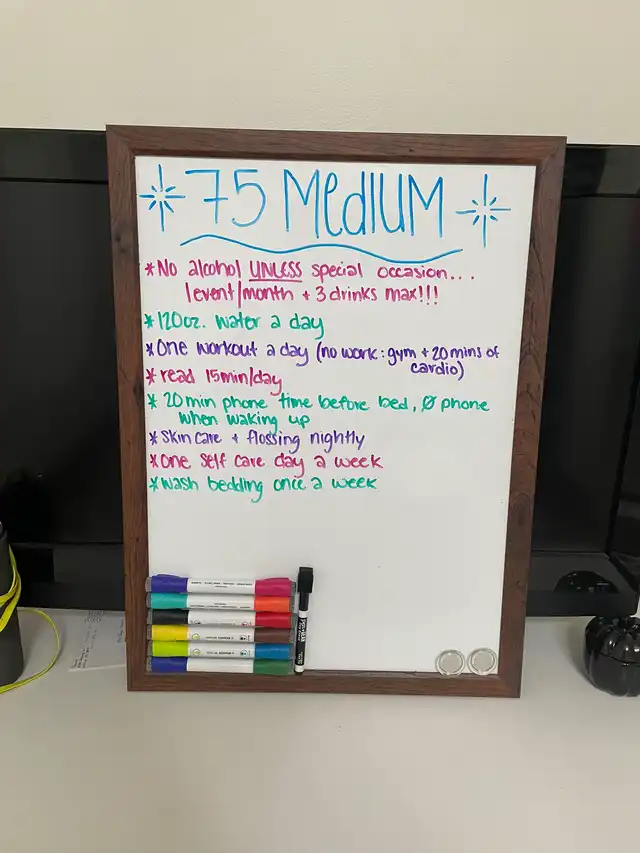 75 MEDIUM
*No alcohol UNLESS special occasion...
1 event/month + 3 drinks max!!!
*120oz. water a day
*One workout a day (no work: gym + 20 mins of
cardio)
*read 15min/day
*20 min phone time before bed, Ø phone
when waking up
*skin care + flossing nightly
*one self care day a week
*wash bedding once a week